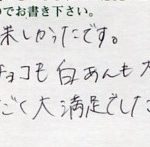 のでお書き下さい。
味しかったです。
チョコも白あんも大
ごく大満足でした